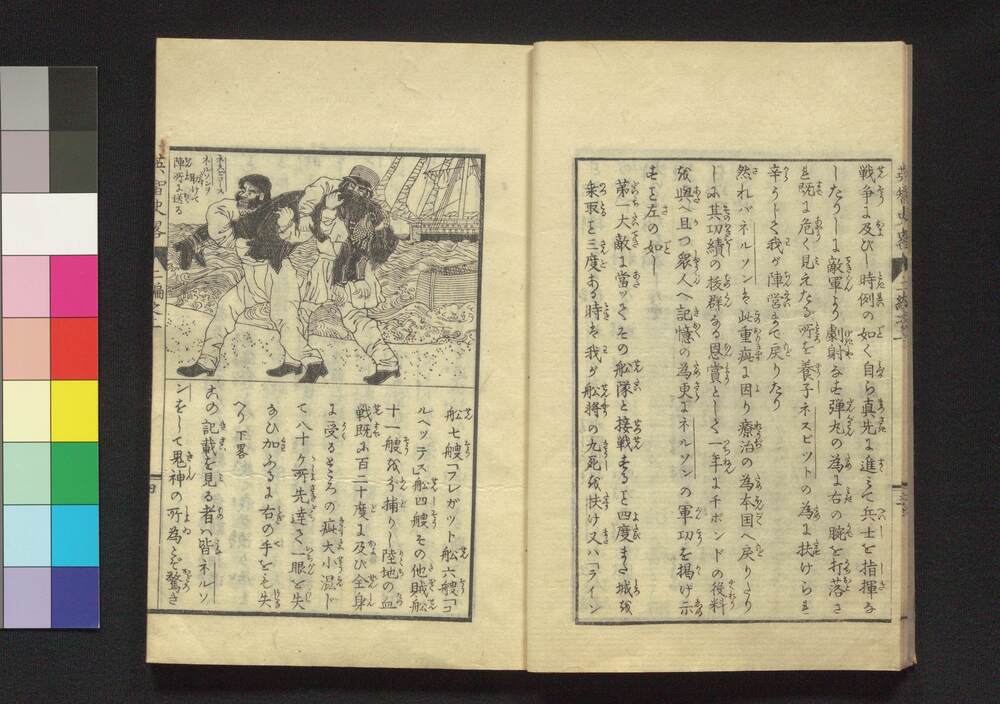 戦争に及びし時例の如く自ら真先に進みて兵士を指揮な
したりしに敵軍より劇射なす弾丸の為に右の腕を打落さ
れ既に危く見えたる所を養子ネスビットの為に扶けられ
辛うじて我が陣営まで戻りたり
然ればネルソンは此重疵に因り療治の為本国へ戻りたり
しに其功績の抜群なる恩賞として一年に千ポンドの役料
を与へ且つ衆人へ記憶の為更にネルソンの軍功を掲げ示
すこと左の如し
第一大敵に當ッてその船隊と接戦すること四度また城を
乗取こと三度ある時は我が船将の九死を扶け又ハ「ライン
英智史略
二編之一
ネスビース
ネルソンヲ
助けて
陣所に送る
船七艘「フレガット船六艘「コ
ルヘッテス」船四艘その他賊船
十一艘を分捕りし陸地の血
戦既に百二十度に及び全身
に受るところの疵大小混じ
て八十ケ所先達て一眼を失
なひ加ふるに右の手をも失
へり 下略
この記載を見る者ハ皆「ネルソ
ン」をして鬼神の所為かと驚き
四